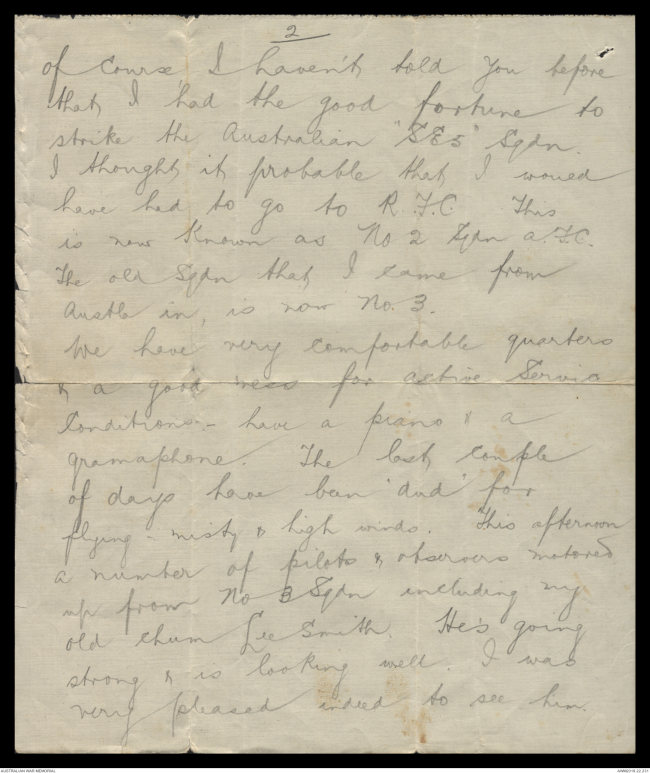 2
of course I haven't told you before
that I had the good fortune to
strike the Australian "SE5" Sqdn.
I thought it probable that I would
have had to go to R.F.C. This
is now known as No 2 Sqdn A.F.C.
The old Sqdn that I came from
Austla in, is now No. 3.
We have very comfortable quarters
& a good mess for active service
conditions - have a piano & a
gramaphone. The last couple
of days have been 'dud' for
flying - misty & high winds. This afternoon
a number of pilots & observers motored
up from No 3 Sqdn including my
old chum Lee Smith. He's going
strong & is looking well. I was
very pleased indeed to see him.
AUSTRALIAN WAR MEMORIAL